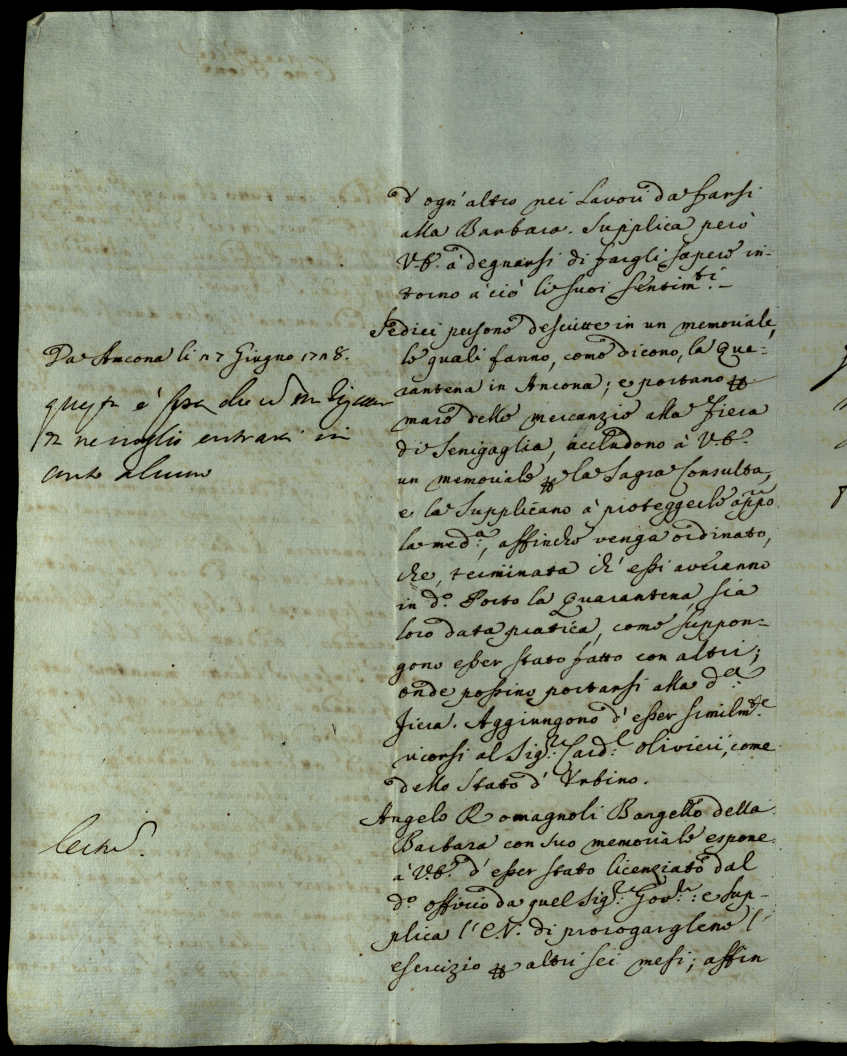 d'ogn'altro nei Lavori da farsi
alla Barbara. Supplica però
V.E. à degnarsi di fargli sapere in-
torno à ciò li suoi sentim.ti
Sedici persone descritte in un memoriale,
le quali fanno, come dicono, la Qua-
rantena in Ancona; e portano
delle mercanzie alla Fiera
di Senigaglia, accludono à V.E.
un memoriale p la Sagra Consulta,
e la Supplicano à proteggerle appo
la med.a, affinche venga ordinato,
che, terminata ch'essi averanno
in d.o Porto la Quarantena, sia
loro data pratica, come suppon-
gono esser stato fatto con altri;
onde possino portarsi alla d.a
Fiera. Aggiungono d'esser similm.te
ricorsi al Sig.r Card.l Olivieri, come
dello Stato d'Urbino.
Angelo Romagnoli Bargello della
Barbara con suo memoriale espone
à V.E. d'esser stato licenziato dal
d.o officio da quel Sig.r Gov.re: e sup-
plica l'E.V. di prorogargliene l'
esercizio p altri sei mesi; affin
Da Ancona li 27 Giugno 1728.
questa è
ne voglio entrare in
conto alcuno